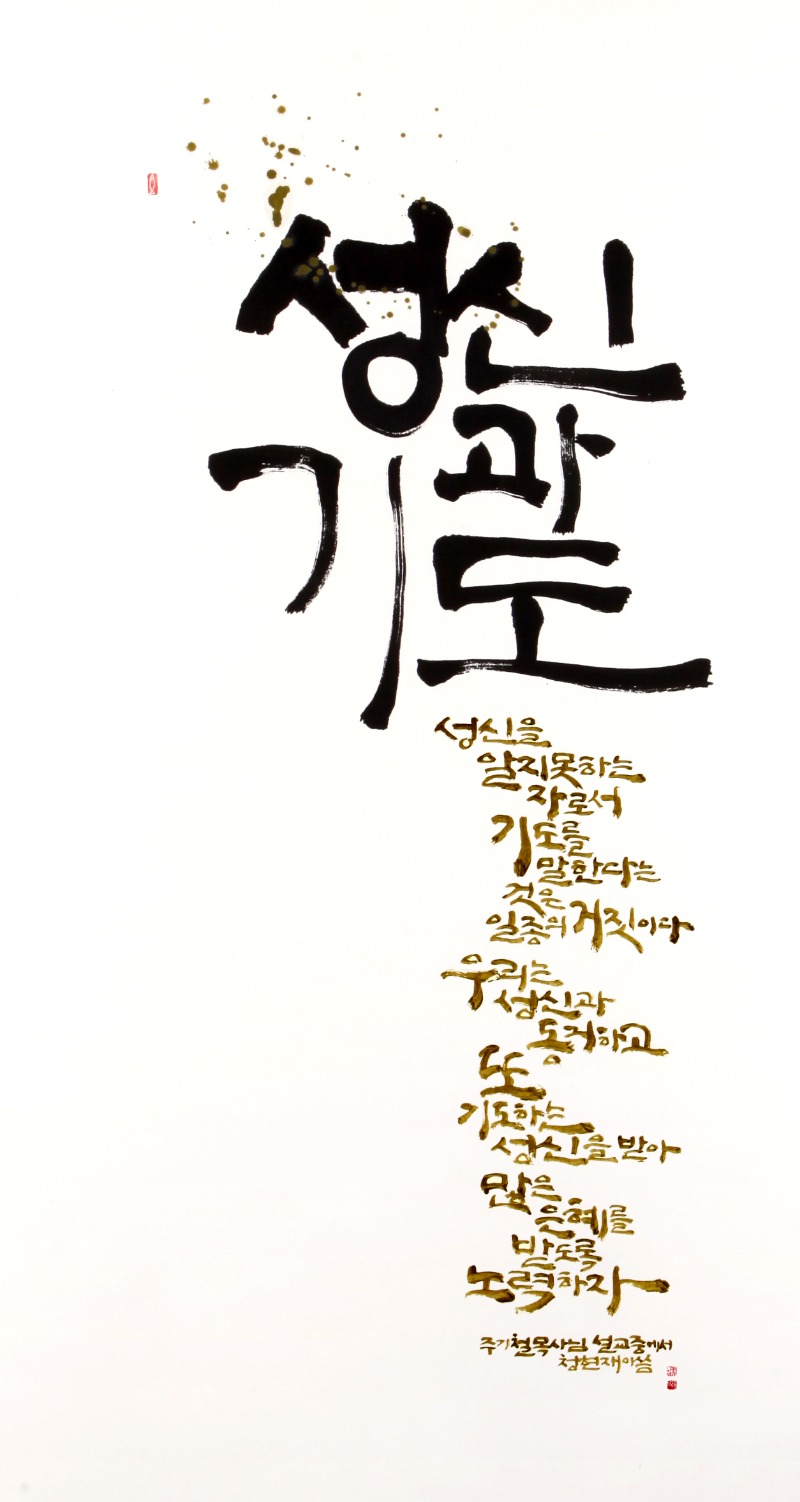 성신과
기도
성신을
알지못하는
자로서
기도를
말한다는
것은
일종의 거짓이다
우리는
성신과
동거하고
또
기도하는
성신을 받아
많은
은혜를
받도록
노력하자
주기철목사님 설교중에서
청현재이씀